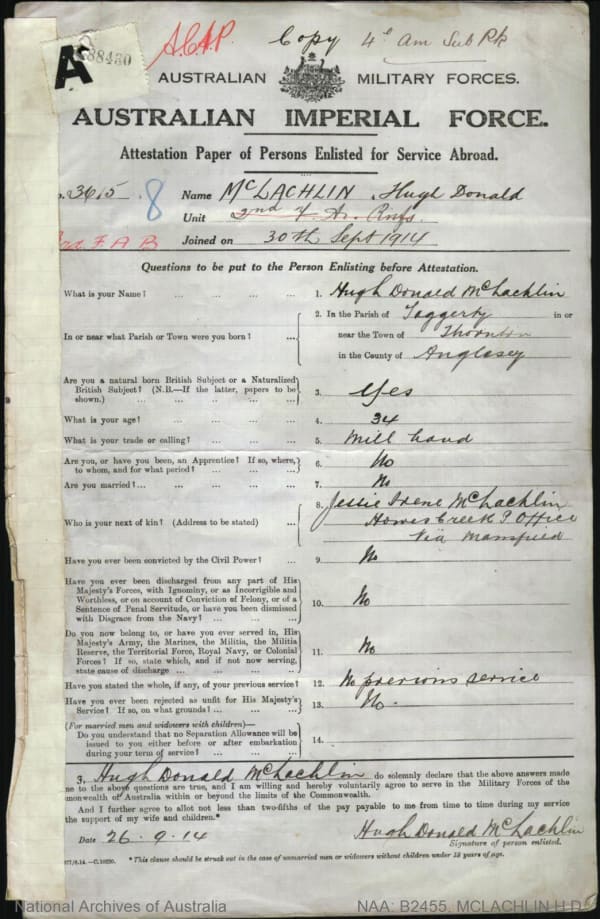 A 88430 A.C.A.P. Copy 4c Am Sub Pk
AUSTRALIAN MILITARY FORCES.
AUSTRALIAN IMPERIAL FORCE.
Attestation Paper of Persons Enlisted for Service Abroad.
o. 3615 8 Name McLACHLIN Hugh Donald
Unit 2nd F. Ar. Rnfs.
F A B Joined on 30th Sept 1914
Questions to be put to the Person Enlisting before Attestation.
What is your Name? ... ... ... ... 1. Hugh Donald McLachlin
In or near what Parish or Town were you born? ... 2. In the Parish of Taggerty in or
near the Town of Thornton
in the County of Anglesey
Are you a natural born British Subject or a Naturalized
British Subject? (N.B.—If the latter, papers to be
shown.) ... ... ... ... 3. Yes
What is your age? ... ... ... ... 4. 34
What is your trade or calling? ... ... ... 5. Mill hand
Are you, or have you been, an Apprentice? If so, where,
to whom, and for what period? ... ... ... 6. No
Are you married?... ... ... ... ... 7. No
Who is your next of kin? (Address to be stated) ... 8. Jessie Irene McLachlin
Howes Creek P. Office
Via Mansfield
Have you ever been convicted by the Civil Power? ... 9. No
Have you ever been discharged from any part of His
Majesty's Forces, with Ignominy, or as Incorrigible and
Worthless, or on account of Conviction of Felony, or of a
Sentence of Penal Servitude, or have you been dismissed
with Disgrace from the Navy? ... ... ... 10. No
Do you now belong to, or have you ever served in, His
Majesty's Army, the Marines, the Militia, the Militia
Reserve, the Territorial Force, Royal Navy, or Colonial
Forces? If so, state which, and if not now serving,
state cause of discharge ... ... ... ... 11. No
Have you stated the whole, if any, of your previous service? 12. No previous service
Have you ever been rejected as unfit for His Majesty's
Service? If so, on what grounds? ... ... ... 13. No.
(For married men and widowers with children)—
Do you understand that no Separation Allowance will be
issued to you either before or after embarkation
during your term of service? ... ... ... 14.
I, Hugh Donald McLachlin do solemnly declare that the above answers made
me to the above questions are true, and I am willing and hereby voluntarily agree to serve in the Military Forces of the
monwealth of Australia within or beyond the limits of the Commonwealth.
And I further agree to allot not less than two-fifths of the pay payable to me from time to time during my service
the support of my wife and children.*
Date 26.9.14 Hugh Donald McLachlin
Signature of person enlisted.
*This clause should be struck out in the case of unmarried men or widowers without children under 18 years of age.
National Archives of Australia NAA: B2455, MCLACHLIN H D